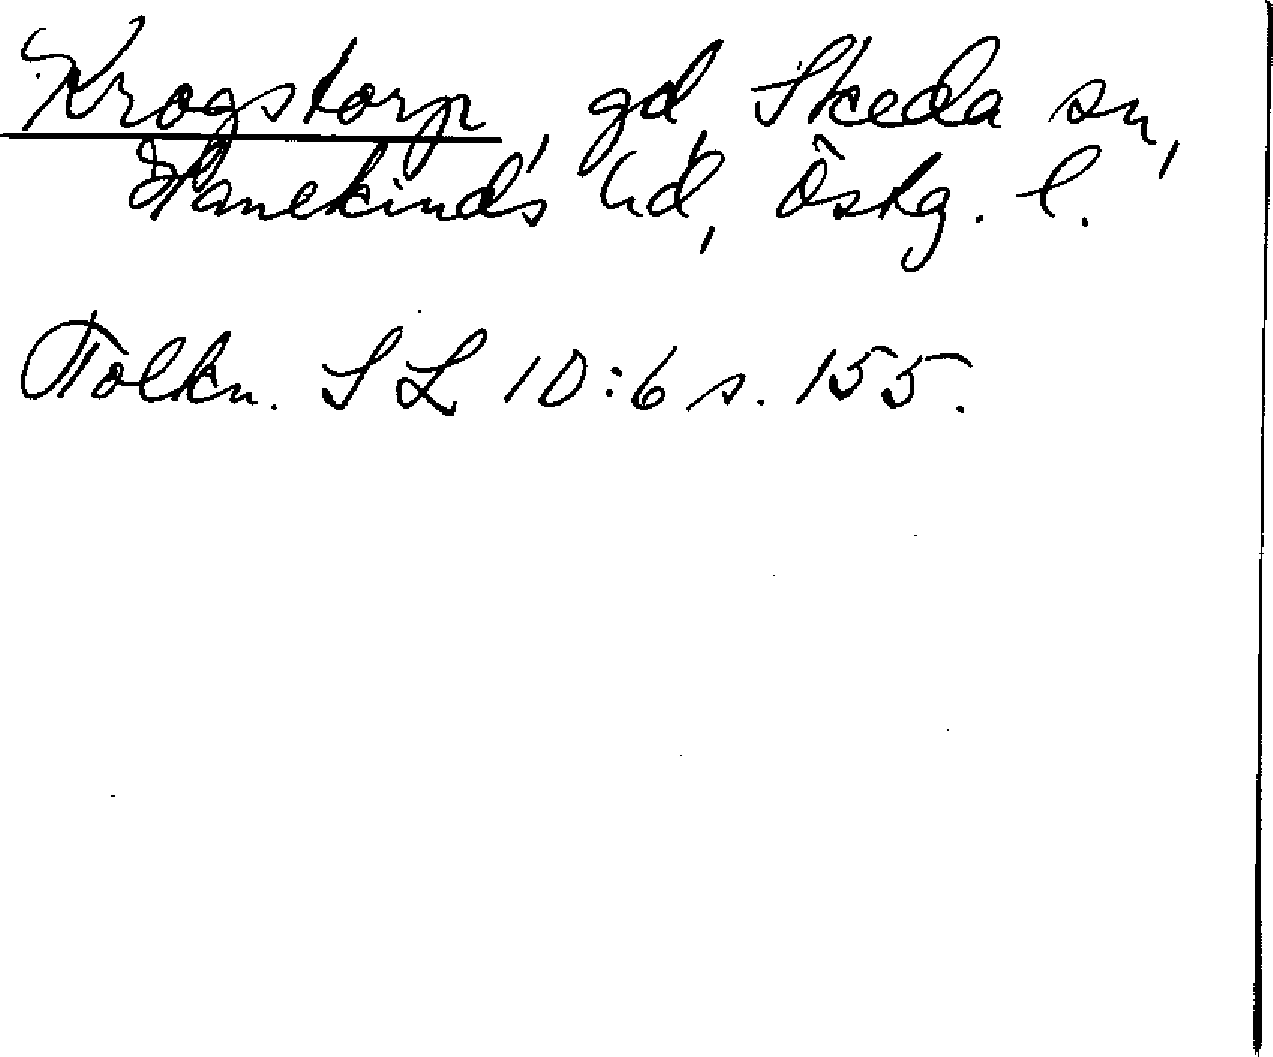 Krogstorp, gd, Skeda sn,
Hanekinds hd, Östg. l.
Tolkn. SL 10:6 s. 155.